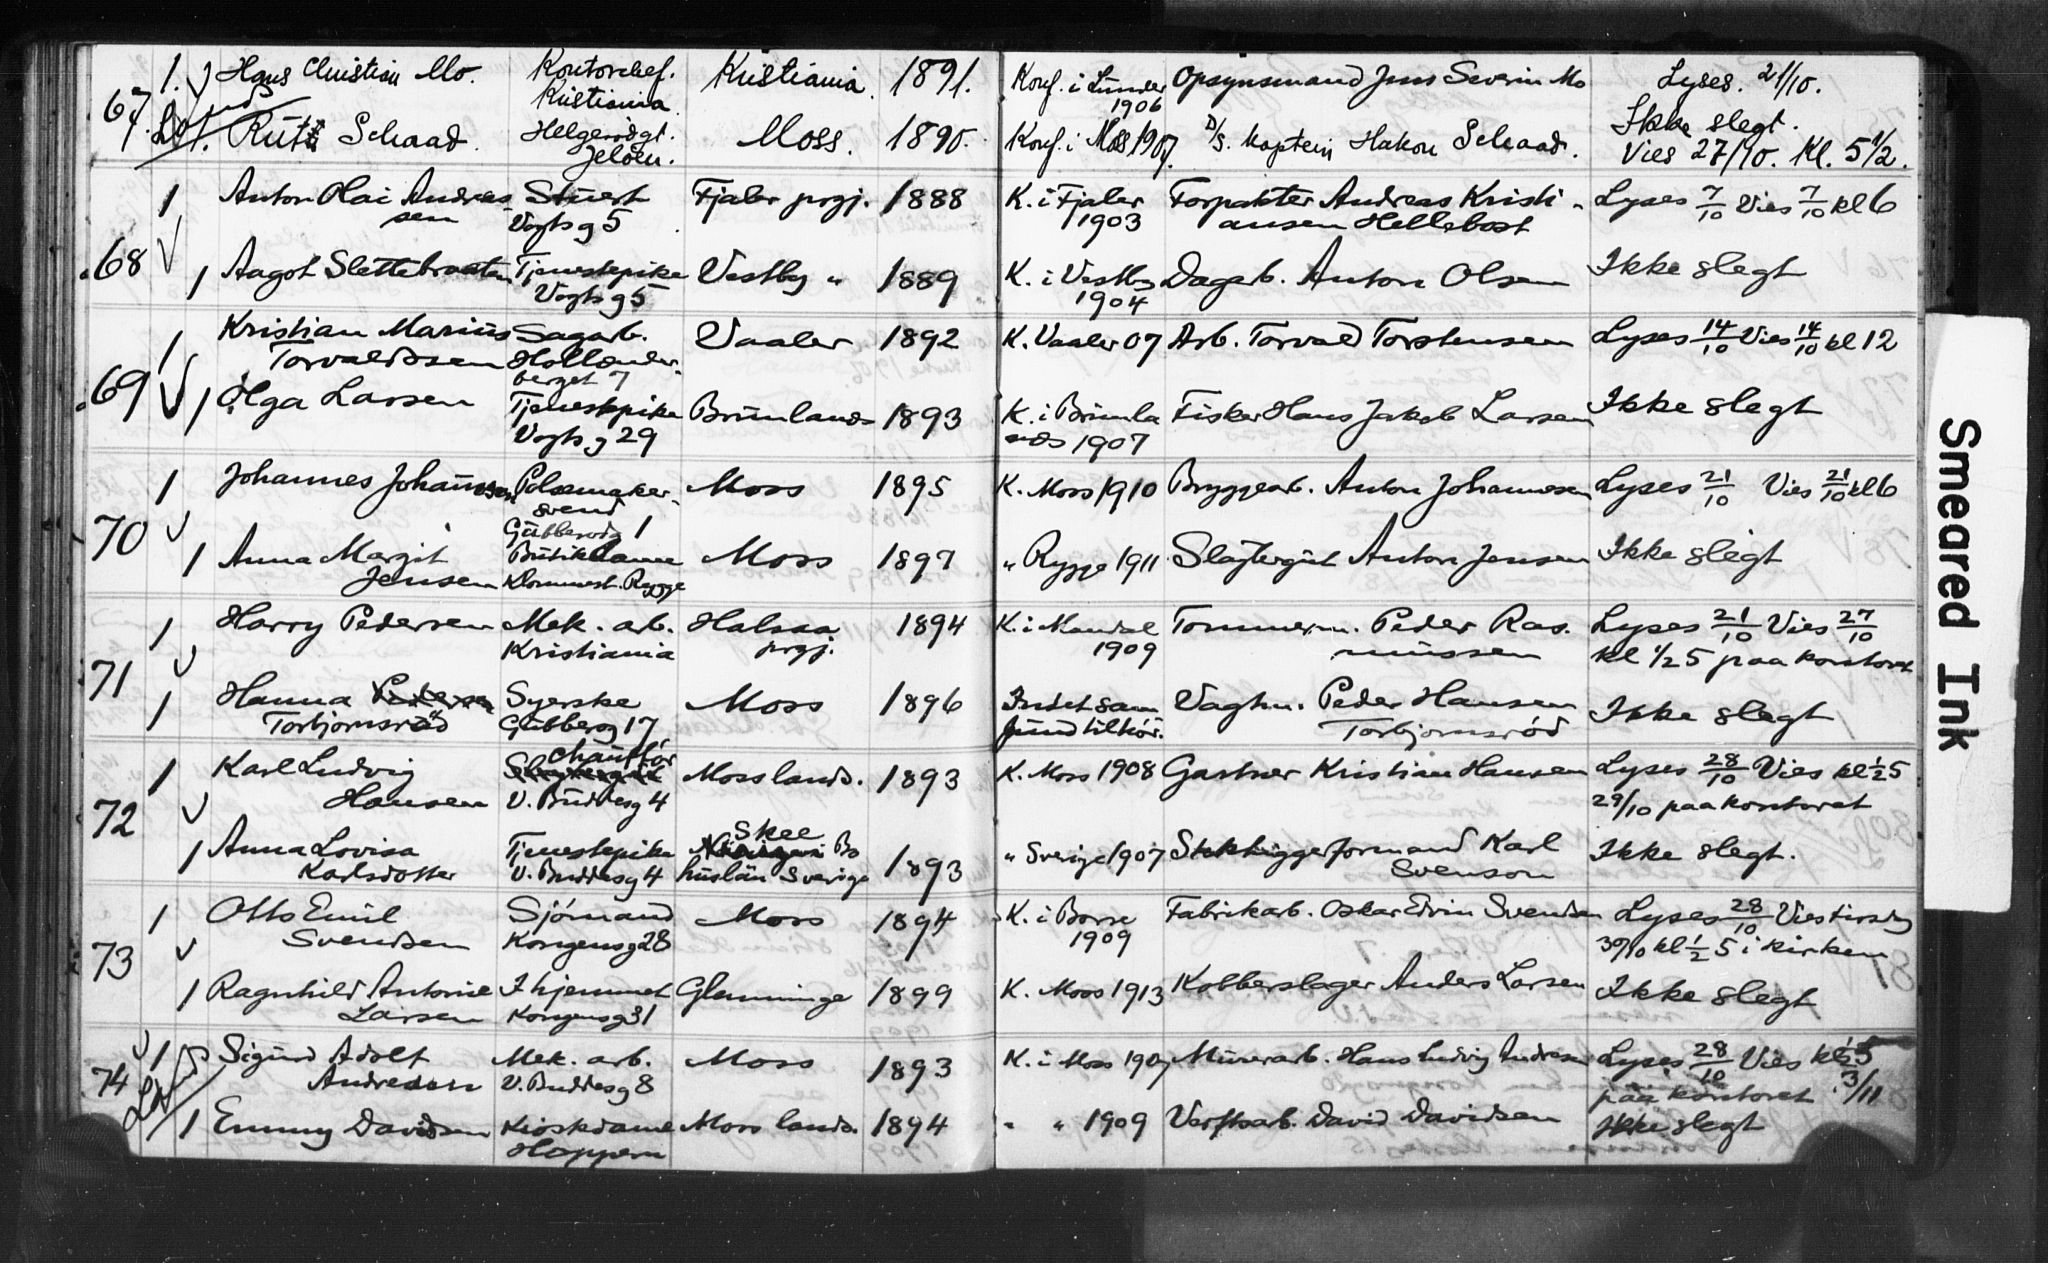 67. 1. Hans Christian Mo. Kontorchef. Kristiania. Kristiania. 1891. Konf. i Lunder 1906 Opsynsmand Jens Severin Mo Lyses. 21/10.
1. Ruth Schaad. Helgerødgt. Jeløen. Moss. 1890. Konf. i Moss 1907. D/S. Kaptein Hakon Schaad. Ikke slegt. Vies 27/10. Kl. 5 1/2.
68 1 Anton Olai Andreassen Stuert Vogtsg 5 Fjaler prgj. 1888 K. i Fjaler 1903 Forpakter Andreas Kristiansen Hellebost Lyses 7/10 Vies 7/10 kl 6
1 Aagot Slettebraaten Tjenestepike Vogtsg 5 Vestby " 1889 K. i Vestby 1904 Dagarb. Anton Olsen Ikke slegt
69 1 Kristian Marius Torvaldsen Sagarb. Hollenderberget 7 Vaaler 1892 K. Vaaler 07 Arb. Torvald Torstensen Lyses 14/10 Vies 14/10 kl 12
1 Olga Larsen Tjenestepike Vogtsg 29 Brunlanes 1893 K. i Brunlanes 1907 Fisker Hans Jakob Larsen Ikke slegt
70 1 Johannes Johannessen Pølsemakersvend Gubberog 1 Moss 1895 K. Moss 1910 Bryggearb. Anton Johannesen Lyses 21/10 Vies 21/10 kl 6
1 Anna Margit Jensen Butikdame Kommest. Rygge Moss 1897 " Rygge 1911 Anton Jensen Ikke slegt
71 1 Harry Pedersen Mek. arb. Kristiania Halsaa prgj. 1894 K. i Mandal 1909 Tømmerm. Peder Rasmussen Lyses 21/10 Vies 27/10 kl 1/2 5 paa kontoret
1 Hanna Pedersen Torbjornsrød Syerske Gubberog 17 Moss 1896 Indet samfund tilhör. Vaghn. Peder Hansen Torbjornsrød Ikke slegt
72 1 Karl Ludvig Hansen Chauffør V. Buddesg 4 Moss lands. 1893 K. Moss 1908 Gartner Kristian Hansen Lyses 28/10 Vies kl 1/2 5 29/10 paa kontoret
1 Anna Lovisa Karlsdotter Tjenestepike V. Buddesg 4 Skee Bohuslän Sverige 1893 " Sverige 1907 Stenhuggerformand Karl Svenson Ikke slegt.
73 1 Otto Emil Svendsen Sjömand Kongensg 28 Moss 1894 K. i Borre 1909 Fabrikarb. Oskar Edvin Svendsen Lyses 28/10 Vies tirsdag 30/10 kl 1/2 5 i kirken
1 Ragnhild Antonie Larsen I hjemmet Kongensg 31 Glemminge 1899 K. Moss 1913 Kobberslager Anders Larsen Ikke slegt
74 1 Sigurd Adolf Andresen Mek. arb. V. Buddesg 8 Moss 1893 K. i Moss 1907 Murerarb. Hans Ludvig Andresen Lyses 28/10 Vies kl 1/2 5 3/11 paa kontoret
1 Emmy Davidsen Kioskdame Hoppern Moss lands. 1894 " " 1909 Verftsarb. David Davidsen Ikke slegt
Smeared Ink